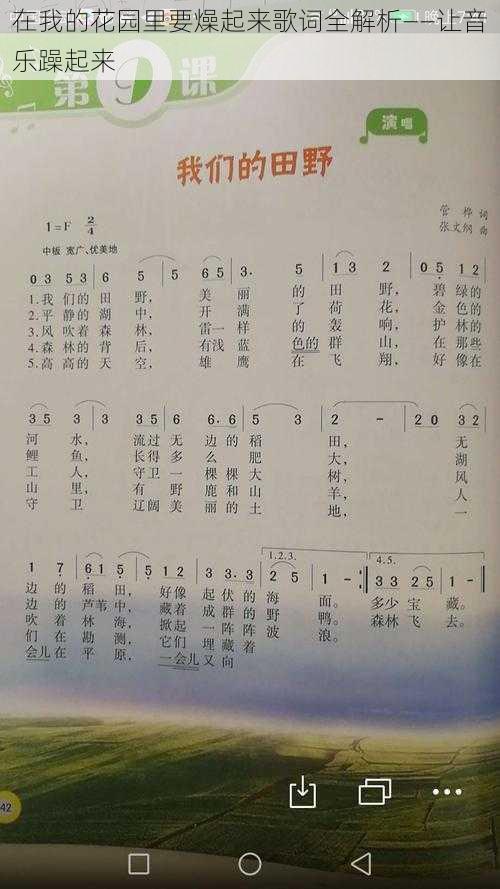 在我的花园里要燥起来歌词全解析——让音
乐躁起来
第9课
演唱
我们的田野
管桦 词
张文纲 曲
1=F 2/4
中板 宽广、优美地
0 3 5 3 6 5 5 6 5 3. 5 1 3 2 0 5 1 2
1.我们的田野，美丽的田野，碧绿的
2.平静的湖中，开满了荷花，金色的
3.风吹着森林，雷一样的轰响，护林的
4.森林的背后，有浅蓝色的群山，在那些
5.高高的天空，雄鹰在飞翔，好像在
3 5 3 3 5 6 6 2 6 5 3 2 - 2 0 3 2
河水，流过无边的稻田，无
鲤鱼，长得多么肥大，湖
工人，守卫一棵棵大树，风
山里，有野鹿和山羊，人
守卫辽阔美丽的土地，一
1.2.3. 4.5.
1 7 6 1 5 1 2 3 3. 3 2 5 1 - 3 3 2 5 1 -
边的稻田，好像起伏的海面。多少宝藏。
边的芦苇中，藏着成群的野鸭。森林飞去。
吹着林海，掀起一阵阵波浪。
们在勘测，它们埋藏着
会儿在平原，一会儿又向
42